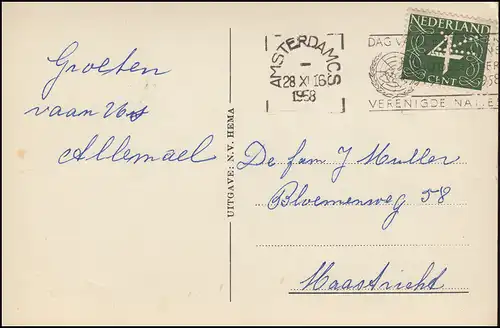 Groeten
vaan Us
Allemael
UITGAVE: N.V. HEMA
AMSTERDAM CS
28 XI 16
1958
DAG VA
VERENIGDE NATIE
NEDERLAND
4
CENT
De fam J Muller
Bloemenweg 58
Maastricht